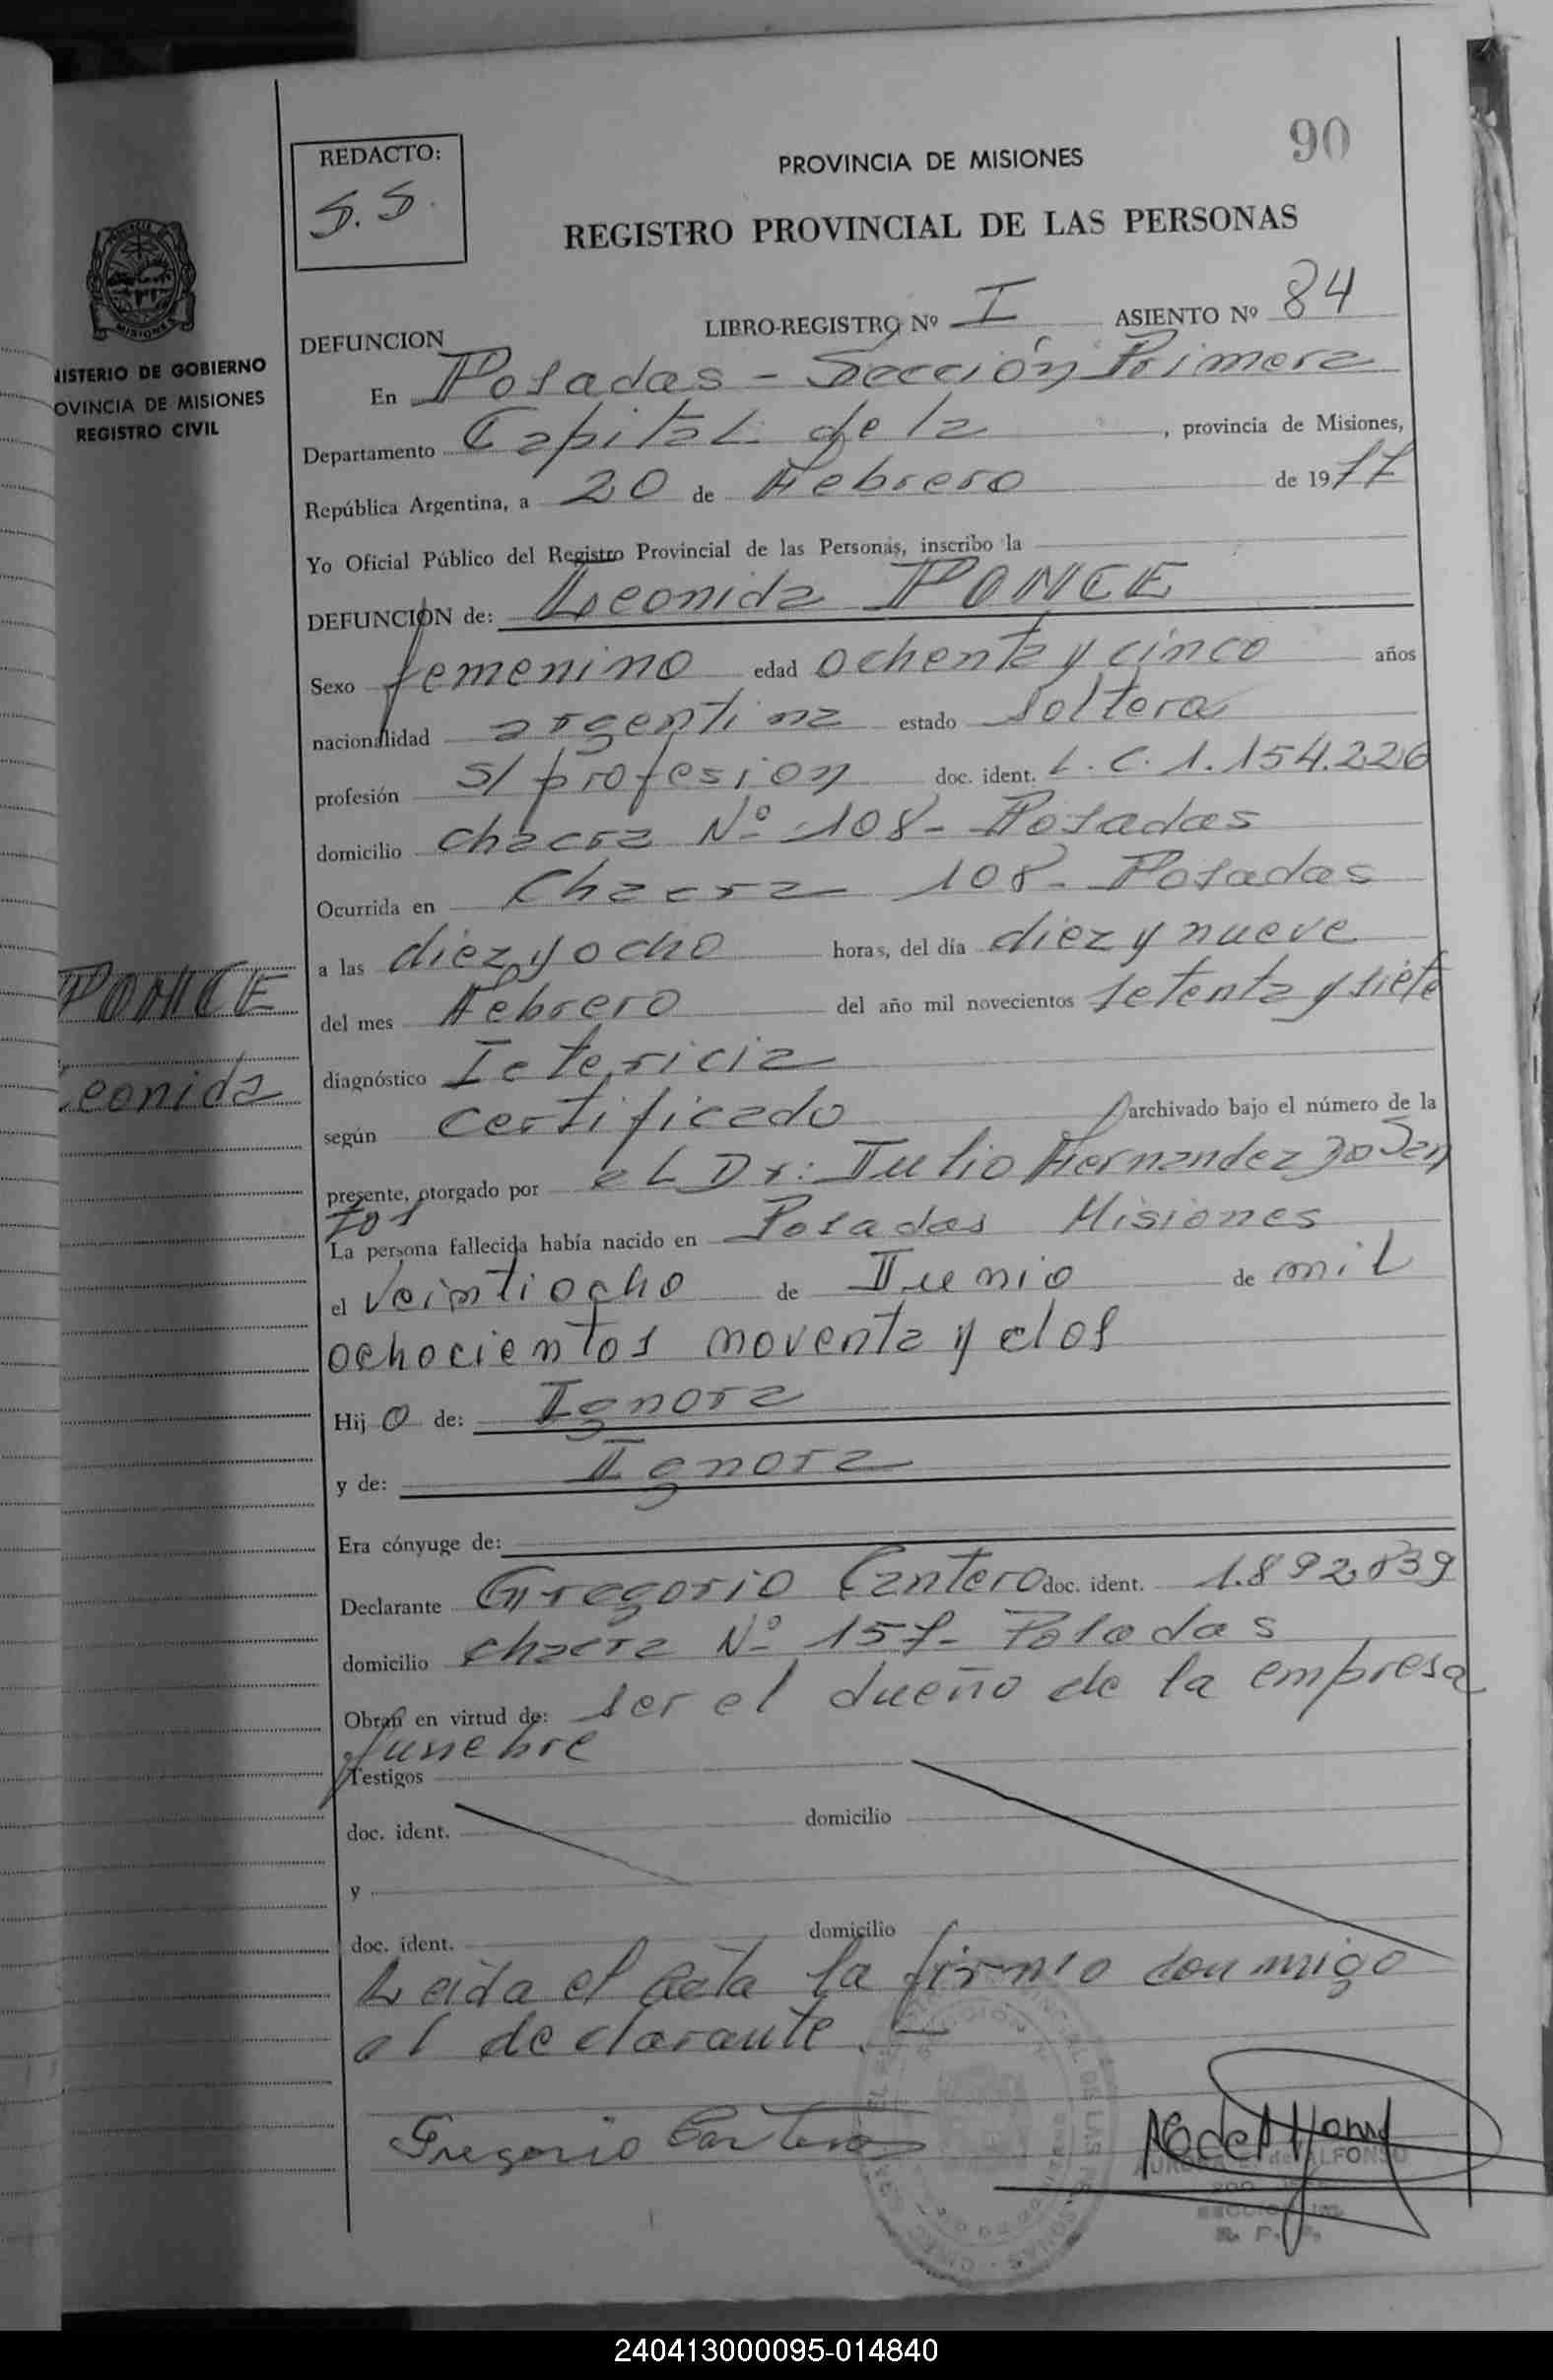 90
REDACTO:
S.S.
PROVINCIA DE MISIONES
REGISTRO PROVINCIAL DE LAS PERSONAS
MISIONES
NISTERIO DE GOBIERNO
OVINCIA DE MISIONES
REGISTRO CIVIL
DEFUNCION LIBRO-REGISTRO Nº I ASIENTO Nº 84
En Posadas - Sección Primera
Departamento Capital de la , provincia de Misiones,
República Argentina, a 20 de Febrero de 1977
Yo Oficial Público del Registro Provincial de las Personas, inscribo la
DEFUNCION de: Leonida PONCE
Sexo femenino edad ochenta y cinco años
nacionalidad argentina estado soltera
profesión s/ profesion doc. ident. L.C. 1.154.226
domicilio chacra Nº 108 - Posadas
Ocurrida en Chacra 108 - Posadas
a las diez y ocho horas, del día diez y nueve
PONCE
del mes Febrero del año mil novecientos setenta y siete
diagnóstico Ictericia
Leonida
según certificado archivado bajo el número de la
presente, otorgado por el Dr: Julio Hernandez Do San
tos
La persona fallecida había nacido en Posadas Misiones
el veintiocho de Junio de mil
ochocientos noventa y dos
Hij o de: Ignora
y de: Ignora
Era cónyuge de:
Declarante Gregorio Cantero doc. ident. 1.892.839
domicilio chacra Nº 157 - Posadas
Obran en virtud de: ser el dueño de la empresa
funebre
Testigos
doc. ident. domicilio
y
doc. ident. domicilio
Leida el acta la firma conmigo
el declarante. -
Gregorio Cantero
de ALFONSO
R. P. P.
240413000095-014840